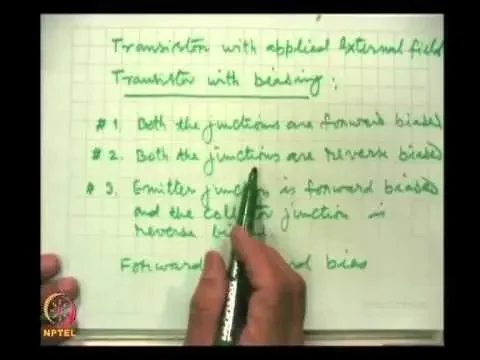 Transistor with applied external field
Transistor with biasing:
#1. Both the junctions are forward biased
#2. Both the junctions are reverse biased
#3. Emitter junction is forward biased
and the collector junction is
reverse
Forward bias
NPTEL